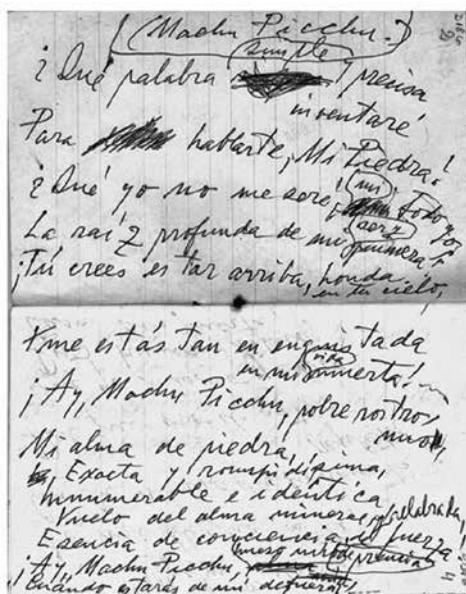 (Machu Picchu.)
simple
¿Qué palabra y precisa
inventaré
Para hablarte, Mi Piedra!
¿Qué yo no me seré, mi todo yo,
La raíz profunda de mi ser primera?
¡Tú crees estar arriba, honda,
en tu cielo,
Y me estás tan en enquistada
en mi vida muerta!
¡Ay, Machu Picchu, pobre rostro
mío,
Mi alma de piedra,
Exacta y rompidísima,
Innumerable e idéntica
Vuelo del alma mineral,
Esencia de conciencia y fuerza
¡Ay, Machu Picchu, presencia
Cuándo estarás de mí afuera!